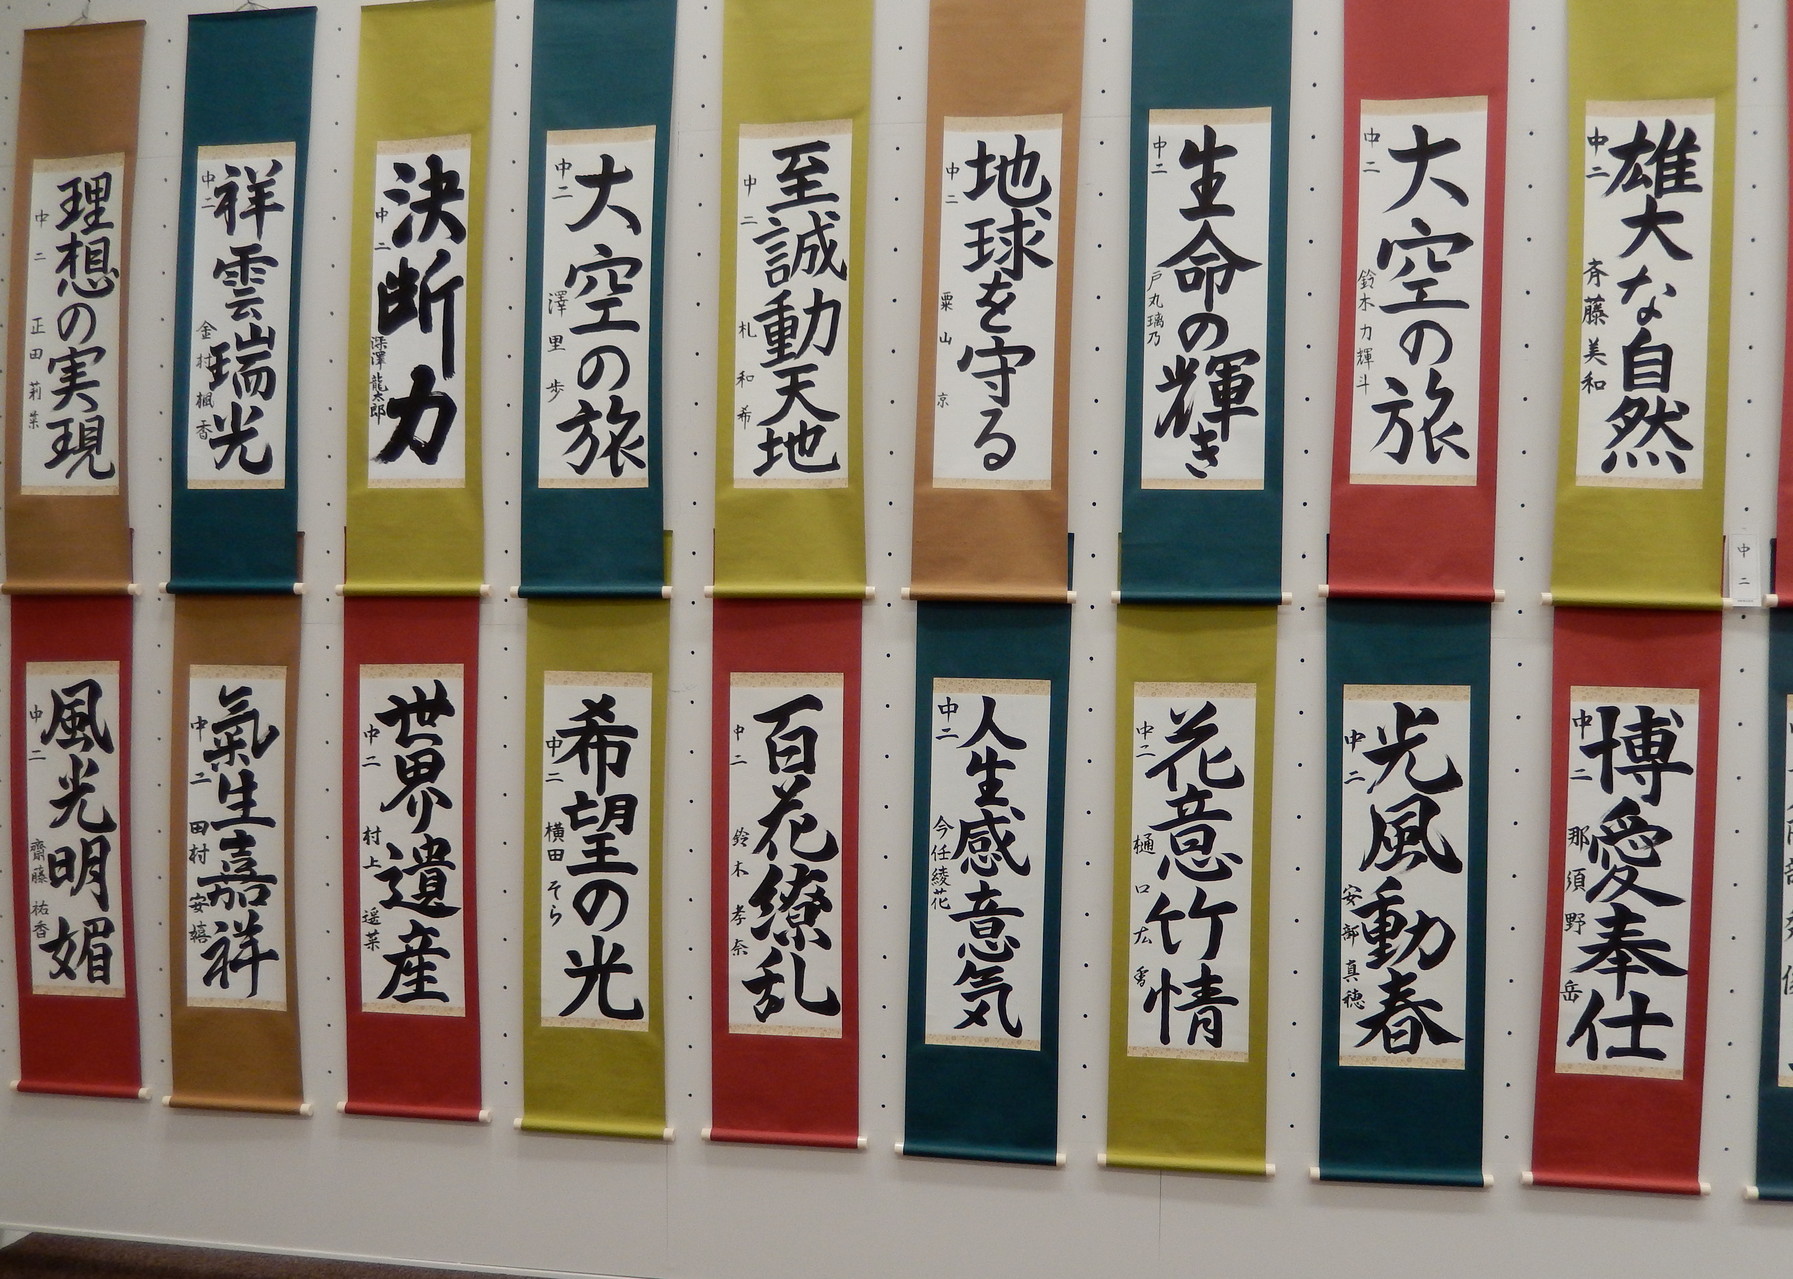 雄大な自然
中二 斉藤美和
大空の旅
中二 鈴木力輝斗
生命の輝き
中二 戸丸璃乃
地球を守る
中二 粟山京
至誠動天地
中二 札和希
大空の旅
中二 澤里歩
決断力
中二 深澤龍太郎
祥雲瑞光
中二 金村楓香
理想の実現
中二 正田莉菜
中二
博愛奉仕
中二 那須野岳
光風動春
中二 安部真穂
花意竹情
中二 樋口
人生感意気
中二 今任綾花
百花繚乱
中二 鈴木孝奈
希望の光
中二 横田そら
世界遺産
中二 村上遥菜
氣生嘉祥
中二 田村安嬉
風光明媚
中二 齋藤祐香